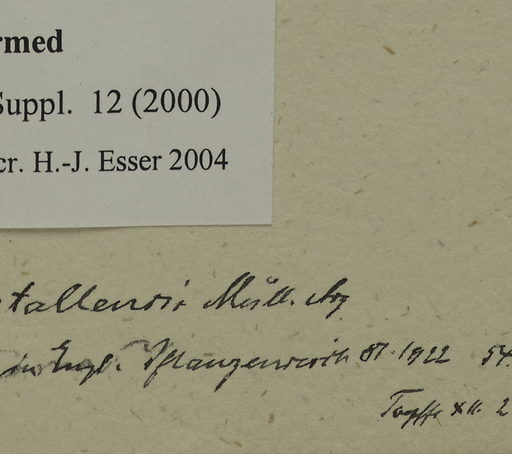 rmed
Suppl. 12 (2000)
cr. H.-J. Esser 2004
tallensis Müll. Arg
in Engl. Pflanzenreich 81. 1922 54.
XII. 2